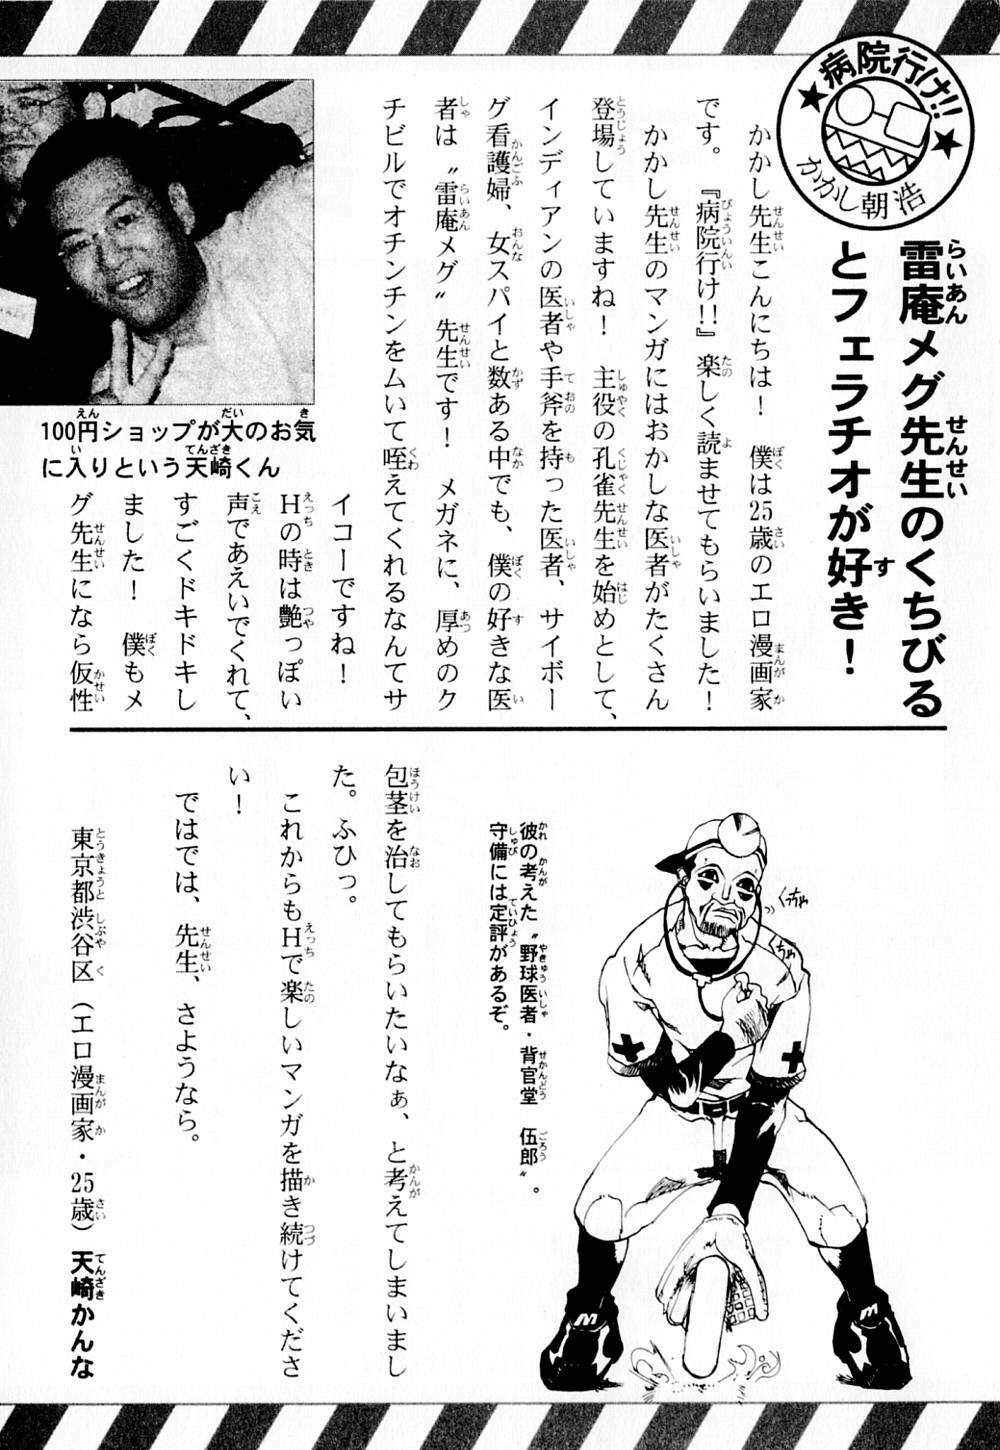 病院行け!!
かかし朝浩
雷庵メグ先生のくちびる
とフェラチオが好き！
かかし先生こんにちは！　僕は25歳のエロ漫画家
です。『病院行け!!』楽しく読ませてもらいました！
かかし先生のマンガにはおかしな医者がたくさん
登場していますね！　主役の孔雀先生を始めとして、
インディアンの医者や手斧を持った医者、サイボー
グ看護婦、女スパイと数ある中でも、僕の好きな医
者は〝雷庵メグ〟先生です！　メガネに、厚めのク
チビルでオチンチンをムいて咥えてくれるなんてサ
イコーですね！
Hの時は艶っぽい
声であえいでくれて、
すごくドキドキし
ました！　僕もメ
グ先生になら仮性
100円ショップが大のお気
に入りという天崎くん
くっちゃ
くちゃ
彼の考えた〝野球医者・背官堂　伍郎〟。
守備には定評があるぞ。
包茎を治してもらいたいなぁ、と考えてしまいまし
た。ふひっ。
これからもHで楽しいマンガを描き続けてくださ
い！
ではでは、先生、さようなら。
東京都渋谷区（エロ漫画家・25歳）天崎かんな